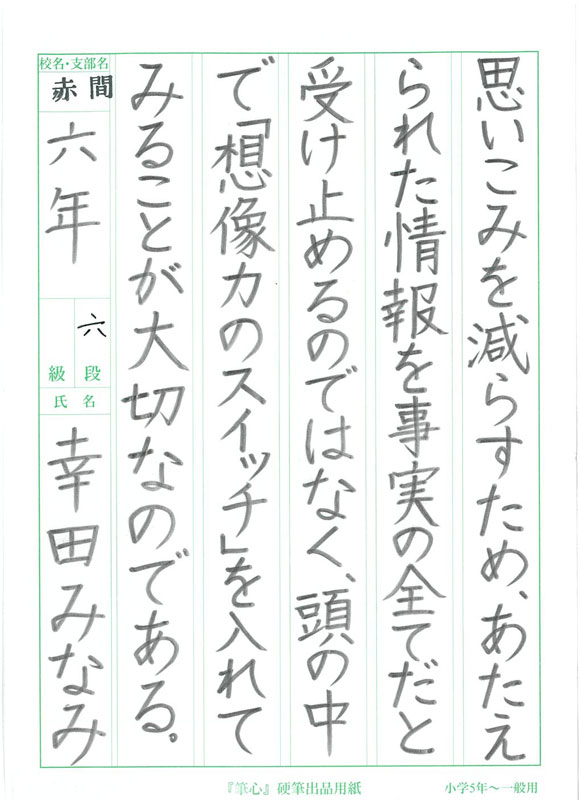 思いこみを減らすため、あたえ
られた情報を事実の全てだと
受け止めるのではなく、頭の中
で「想像力のスイッチ」を入れて
みることが大切なのである。
校名・支部名
赤間
六年
六
段
級
氏名
幸田みなみ
『筆心』硬筆出品用紙
小学5年〜一般用